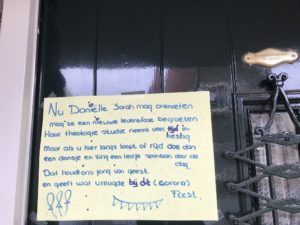 Nu Daniëlle Sarah mag ontmoeten
mag se een nieuwe levensfase begroeten
Haar theologie studie neemt veel tijd in
beslag
Maar als u hier langs loopt of rijd doe dan
een dansje en zing een liedje spontaan over de
dag
Dat houdt ons jong van geest
en geeft wat vreugde bij dit (corona)
Feest